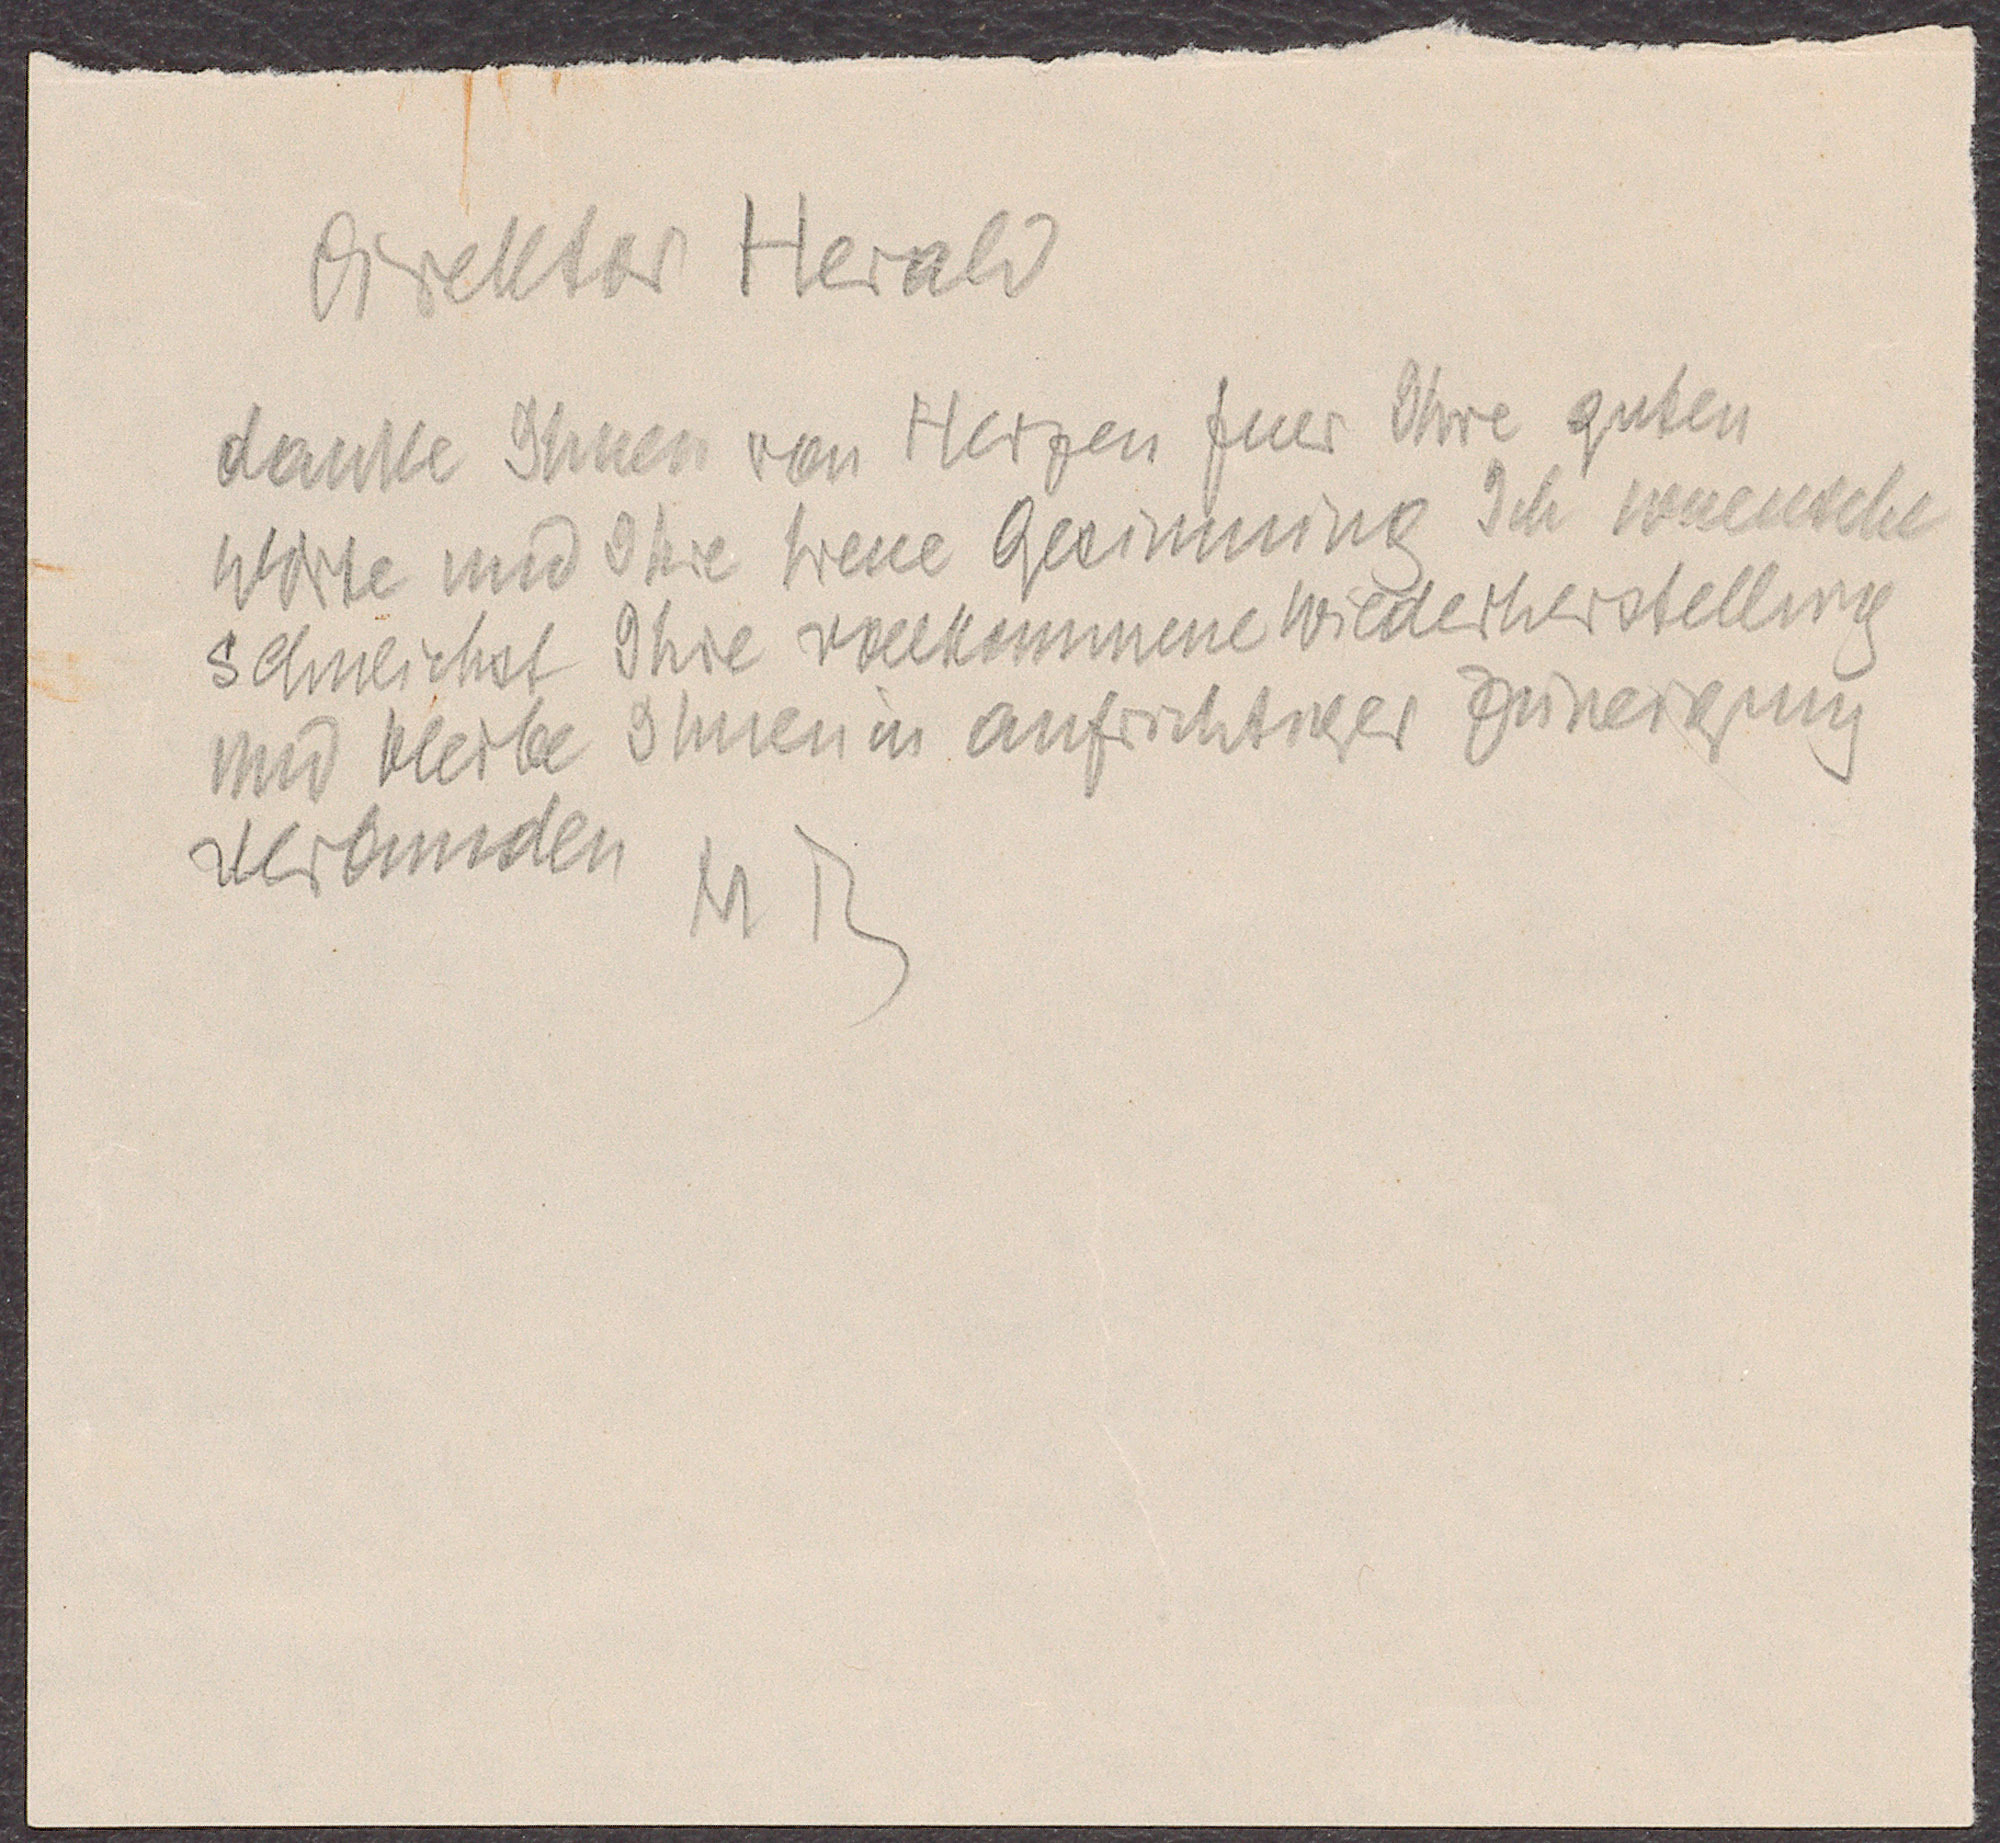 Direktor Herald
danke Ihnen von Herzen fuer Ihre guten
Worte und Ihre treue Gesinnung Ich wuensche
sehnlichst Ihre vollkommene Wiederherstellung
und bleibe Ihnen in aufrichtiger Zuneigung
verbunden